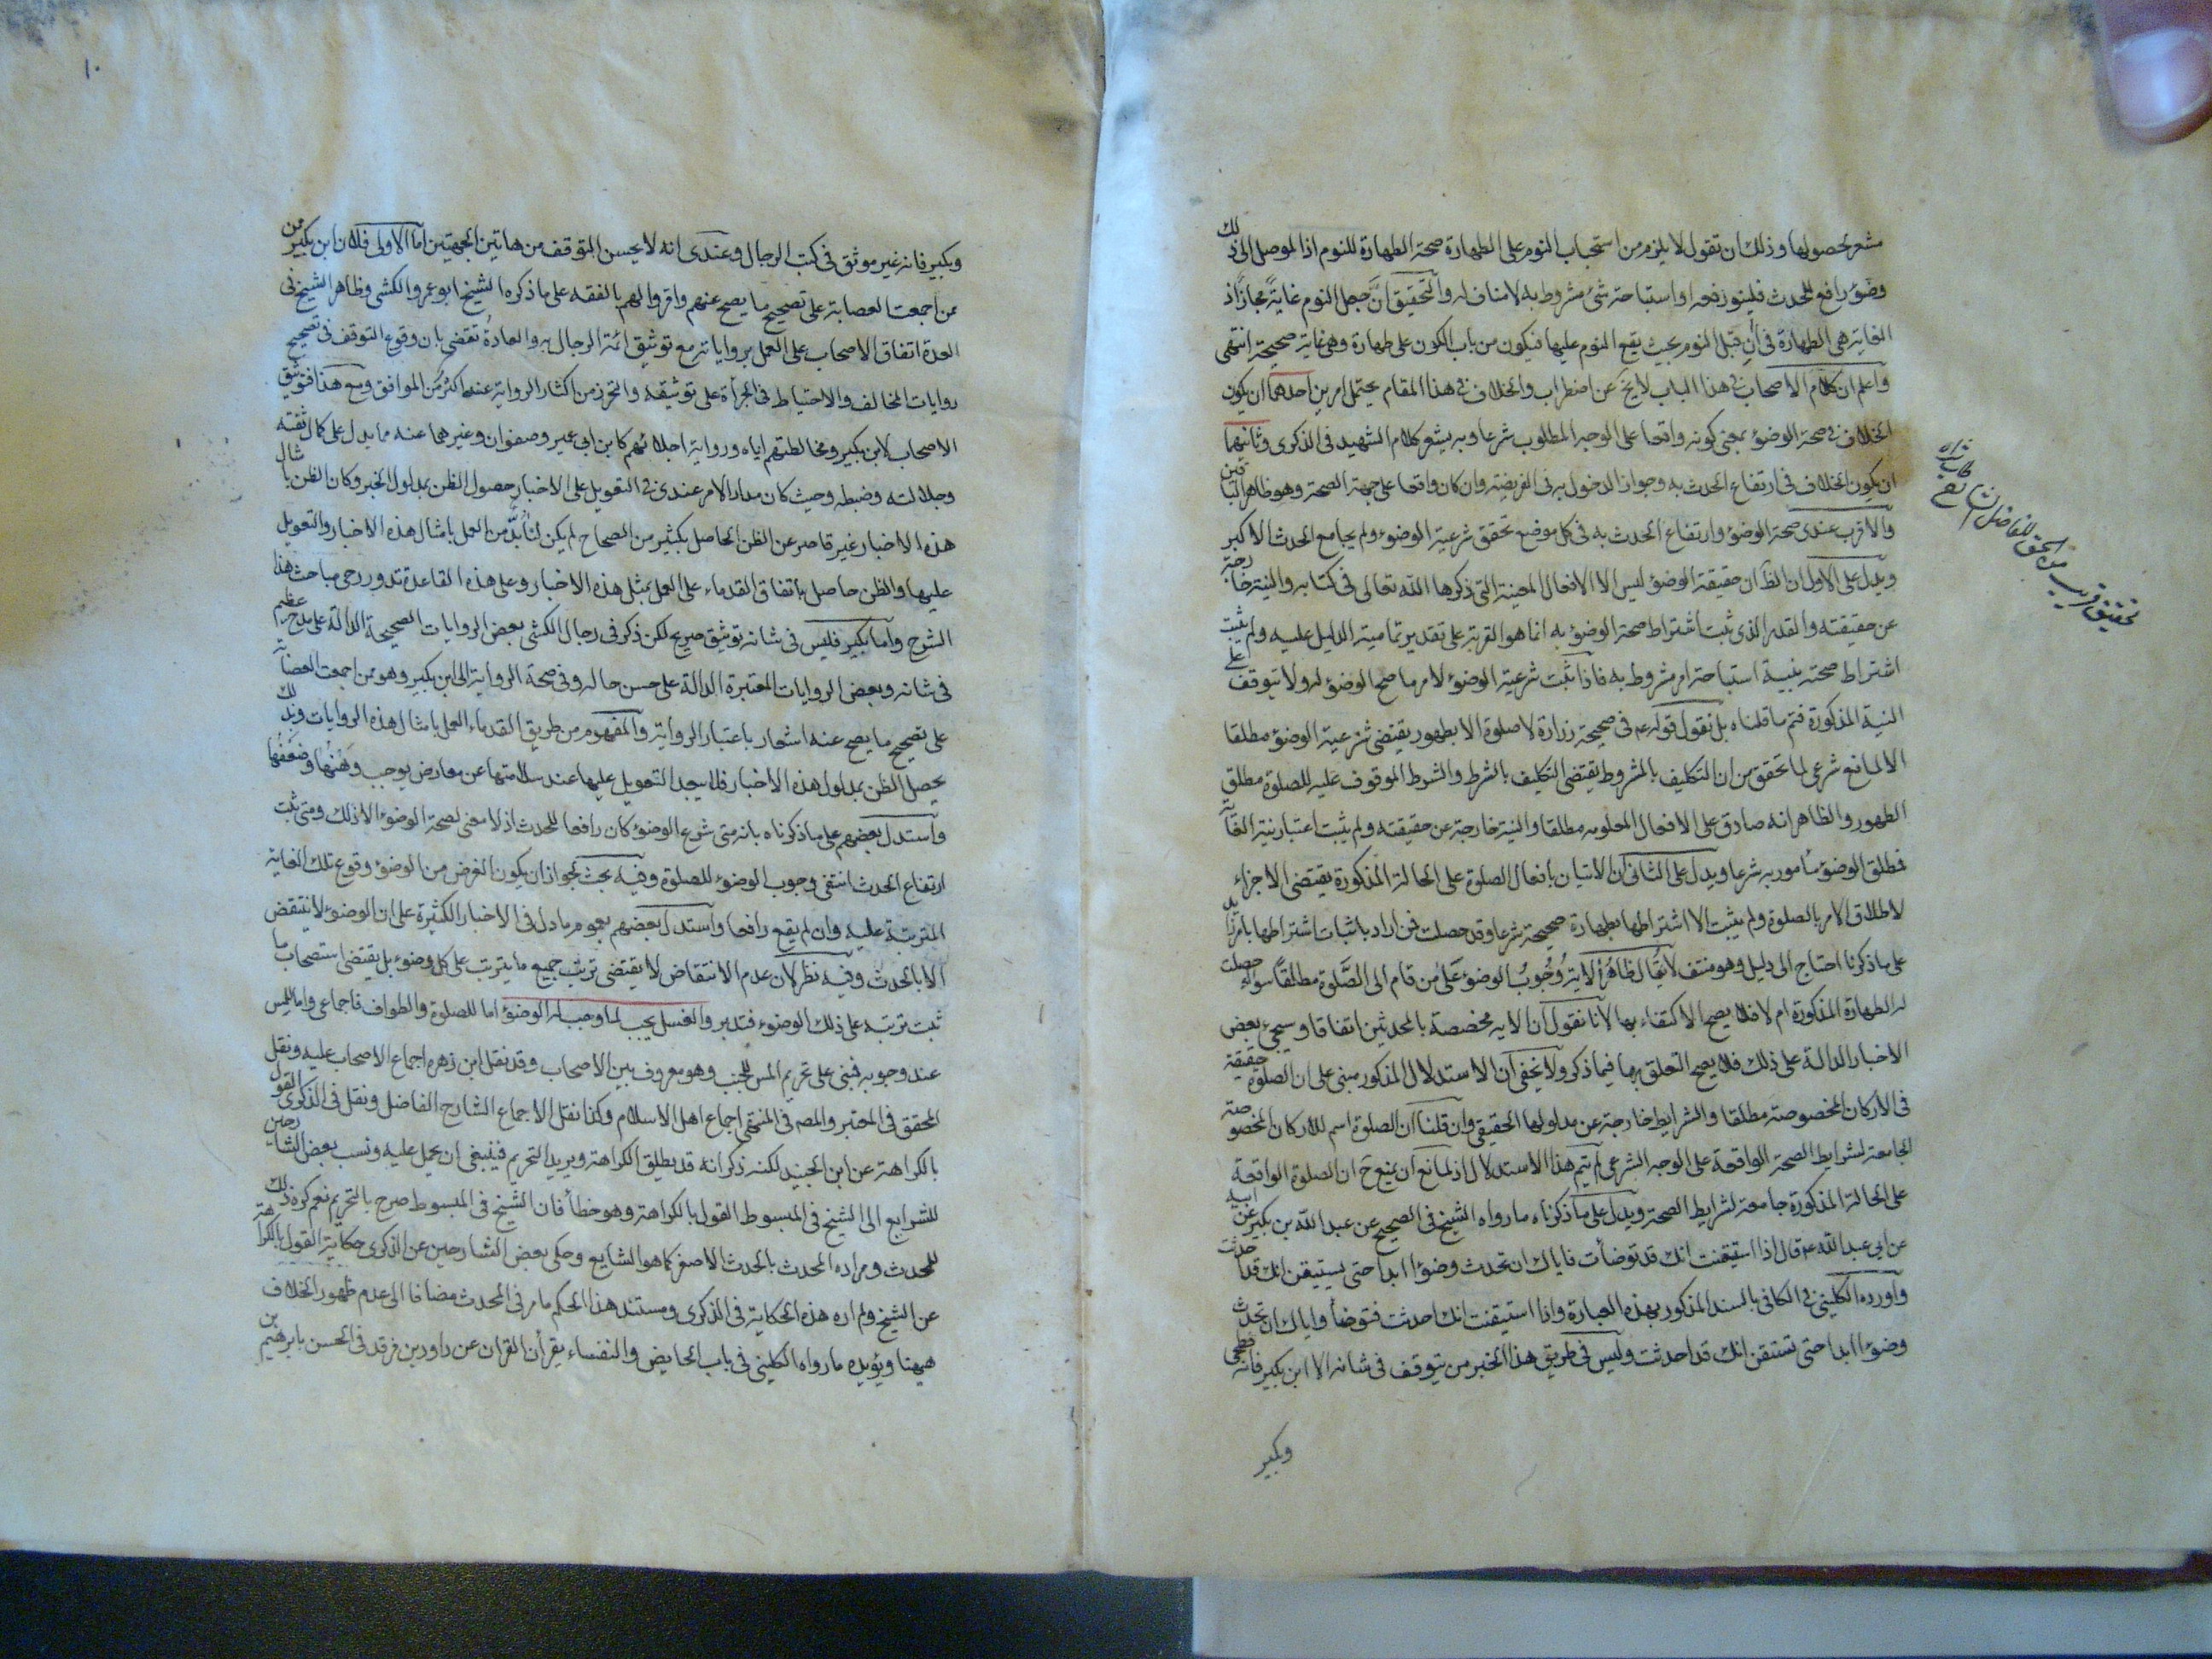 مشعر بحصولها وذلك ان تقول لا يلزم من استحباب النوم على الطهارة صحة الطهارة للنوم اذا لموصل الى ذلك
وضوء رافع للحدث فلينو رفعه او استباحة شئ مشروط به لا مناف له والتحقيق انَّ جعل النوم غايةً مجازاً اذ
الغاية هى الطهارة فى آن قبل النوم بحيث يقع النوم عليها فيكون من باب الكون على طهارة وهى غاية صحيحة انتهى
واعلم ان كلام الاصحاب فى هذا الباب لا يخ عن اضطراب والخلاف فى هذا المقام يحتمل امرين احدهما ان يكون
الخلاف فى صحة الوضوء بمعنى كونه واقعا على الوجه المطلوب شرعا وبه يشعر كلام الشهيد فى الذكرى وثانيهما
ان يكون الخلاف فى ارتفاع الحدث به وجواز الدخول به فى الفريضة وان كان واقعا على جهة الصحة وهو ظاهر الباقين
والاقرب عندى صحة الوضوء وارتفاع الحدث به فى كل موضع تحقق شرعية الوضوء ولم يجامع الحدث الاكبر
ويدل على الاول ان الظ ان حقيقة الوضوء ليس الا الافعال المعينة التى ذكرها الله تعالى فى كتابه والنية خارجة
عن حقيقته والقدر الذى ثبت اشتراط صحة الوضوء به انما هو القربة على تقدير تمامية الدليل عليه ولم يثبت
اشتراط صحته بنية استباحة امر مشروط به فاذا ثبت شرعية الوضوء لامر ما صح الوضوء له ولا يتوقف على
النية المذكورة فتم ما قلناه بل نقول قوله ع فى صحيحة زرارة لا صلوة الا بطهور يقتضى شرعية الوضوء مطلقا
الا لمانع شرعى لما تحقق من ان التكليف بالمشروط يقتضى التكليف بالشرط والشرط الموقوف عليه للصلوة مطلق
الطهور والظاهر انه صادق على الافعال المعلومه مطلقا والنية خارجة عن حقيقته ولم يثبت اعتبار نية الغاية
فمطلق الوضوء مأمور به شرعا ويدل على الثانى ان الاتيان بافعال الصلوة على الحالة المذكورة يقتضى الاجزاء
لاطلاق الامر بالصلوة ولم يثبت الا اشتراطها بطهارة صحيحة شرعا وقد حصلت فمن اراد باثبات اشتراطها بامر زايد
على ما ذكرنا احتاج الى دليل وهو منتف لا يقال ظاهر الاية وجوب الوضوء على من قام الى الصلوة مطلقا سواء حصلت
له الطهارة المذكورة ام لا فلا يصح الاكتفاء بها لانا نقول ان الايه مخصصة بالمحدثين اتفاقا وسيجئ بعض
الاخبار الدالة على ذلك فلا يصح التعلق بها فيما ذكر ولا يخفى ان الاستدلال المذكور مبنى على ان الصلوة حقيقة
فى الاركان المخصوصة مطلقا والشرايط خارجة عن مدلولها الحقيقى وان قلنا ان الصلوة اسم للاركان المخصوصة
الجامعة لشرايط الصحة الواقعة على الوجه الشرعى لم يتم هذا الاستدلال اذ لمانع ان يمنع ح ان الصلوة الواقعة
على الحالة المذكورة جامعة لشرايط الصحة ويدل على ما ذكرناه ما رواه الشيخ فى الصحيح عن عبد الله بن بكير عن ابيه
عن ابى عبد الله ع قال اذا استيقنت انك قد توضأت فاياك ان تحدث وضوءا ابدا حتى يستيقن انك قد احدثت
واورده الكلينى فى الكافى بالسند المذكور بهذه العبارة واذا استيقنت انك احدثت فتوضأ واياك ان تحدث
وضوءا ابدا حتى تستقن انك قد احدثت وليس فى طريق هذا الخبر من يتوقف فى شانه الا ابن بكير فانه فطحى
وبكير
تحقيق قريب من الحق للفاضل الشارح طاب ثراه
١٠
وبكير فانه غير موثق فى كتب الرجال وعندى انه لا يحسن التوقف من هاتين الجهتين اما الاولى فلان ابن بكير من
ممن اجمعت العصابة على تصحيح ما يصح عنهم واقروا لهم بالفقه على ما ذكره الشيخ ابو عمرو الكشى وظاهر الشيخ فى
العدة اتفاق الاصحاب على العمل برواياته مع توثيق ائمة الرجال به والعادة تقتضى بان وقوع التوقف فى تصحيح
روايات المخالف والاحتياط فى الجرأة على توثيقه والتحرز من اكثار الرواية عنه اكثر من الموافق ومع هذا فتوثيق
الاصحاب لابن بكير ومخالطتهم اياه ورواية اجلائهم كابن ابى عمير وصفوان وغيرهما عنه مما يدل على كمال ثقته
وجلالته وضبطه وحيث كان مدار الامر عندى فى التعويل على الاخبار حصول الظن بمدلول الخبر وكان الظن بامثال
هذه الاخبار غير قاصر عن الظن الحاصل بكثير من الصحاح لم يكن لنا بد من العمل بامثال هذه الاخبار والتعويل
عليها والظن حاصل باتفاق القدماء على العمل بمثل هذه الاخبار وعلى هذه القاعدة تدور رحى مباحث هذا
الشرح واما بكير فليس فى شانه توثيق صريح لكن ذكر فى رجال الكشى بعض الروايات الصحيحة الدالة على مدح عظيم
فى شانه وبعض الروايات المعتبرة الدالة على حسن حاله وفى صحة الرواية الى ابن بكير وهو ممن اجمعت العصابة
على تصحيح ما يصح عنه اشعار باعتبار الرواية والمفهوم من طريق القدماء العمل بامثال هذه الروايات وبذلك
يحصل الظن بمدلول هذه الاخبار فلا يبعد التعويل عليها عند سلامتها عن معارض يوجب وهنها وضعفها
واستدل بعضهم على ما ذكرناه بانه متى شرع الوضوء كان رافعا للحدث اذ لا معنى لصحة الوضوء الا ذلك ومتى ثبت
ارتفاع الحدث انتفى وجوب الوضوء للصلوة وفيه بحث لجواز ان يكون الغرض من الوضوء وقوع تلك الغاية
المترتبة عليه وان لم يقع رافعا واستدل بعضهم بعموم ما دل فى الاخبار الكثيرة على ان الوضوء لا ينتقض
الا بالحدث وفيه نظر لان عدم الانتقاض لا يقتضى ترتب جميع ما يترتب على كل وضوء بل يقتضى استصحاب ما
ثبت ترتبه على ذلك الوضوء فتدبر والغسل يجب لما وجب له الوضوء اما للصلوة والطواف فاجماعى واما للمس
عند وجوبه فمبنى على تحريم المس للجنب وهو معروف بين الاصحاب وقد نقل ابن زهره اجماع الاصحاب عليه ونقل
المحقق فى المعتبر والمصه فى المنتهى اجماع اهل الاسلام وكذا نقل الاجماع الشارح الفاضل ونقل فى الذكرى القول
بالكراهة عن ابن الجنيد لكنه ذكر انه قد يطلق الكراهة ويريد التحريم فينبغى ان يحمل عليه ونسب بعض الشارحين
للشرايع الى الشيخ فى المبسوط القول بالكراهة وهو خطأ فان الشيخ فى المبسوط صرح بالتحريم نعم كره ذلك
للمحدث ومراده المحدث بالحدث الاصغر كما هو الشايع وحكى بعض الشارحين عن الذكرى حكاية القول بالكراهة
عن الشيخ ولم اره هذه الحكاية فى الذكرى ومستند هذا الحكم ما مر فى المحدث مضافا الى عدم ظهور الخلاف
هيهنا ويؤيده ما رواه الكلينى فى باب الحايض والنفساء يقرأن القران عن داود بن فرقد فى الحسن بابرهيم بن